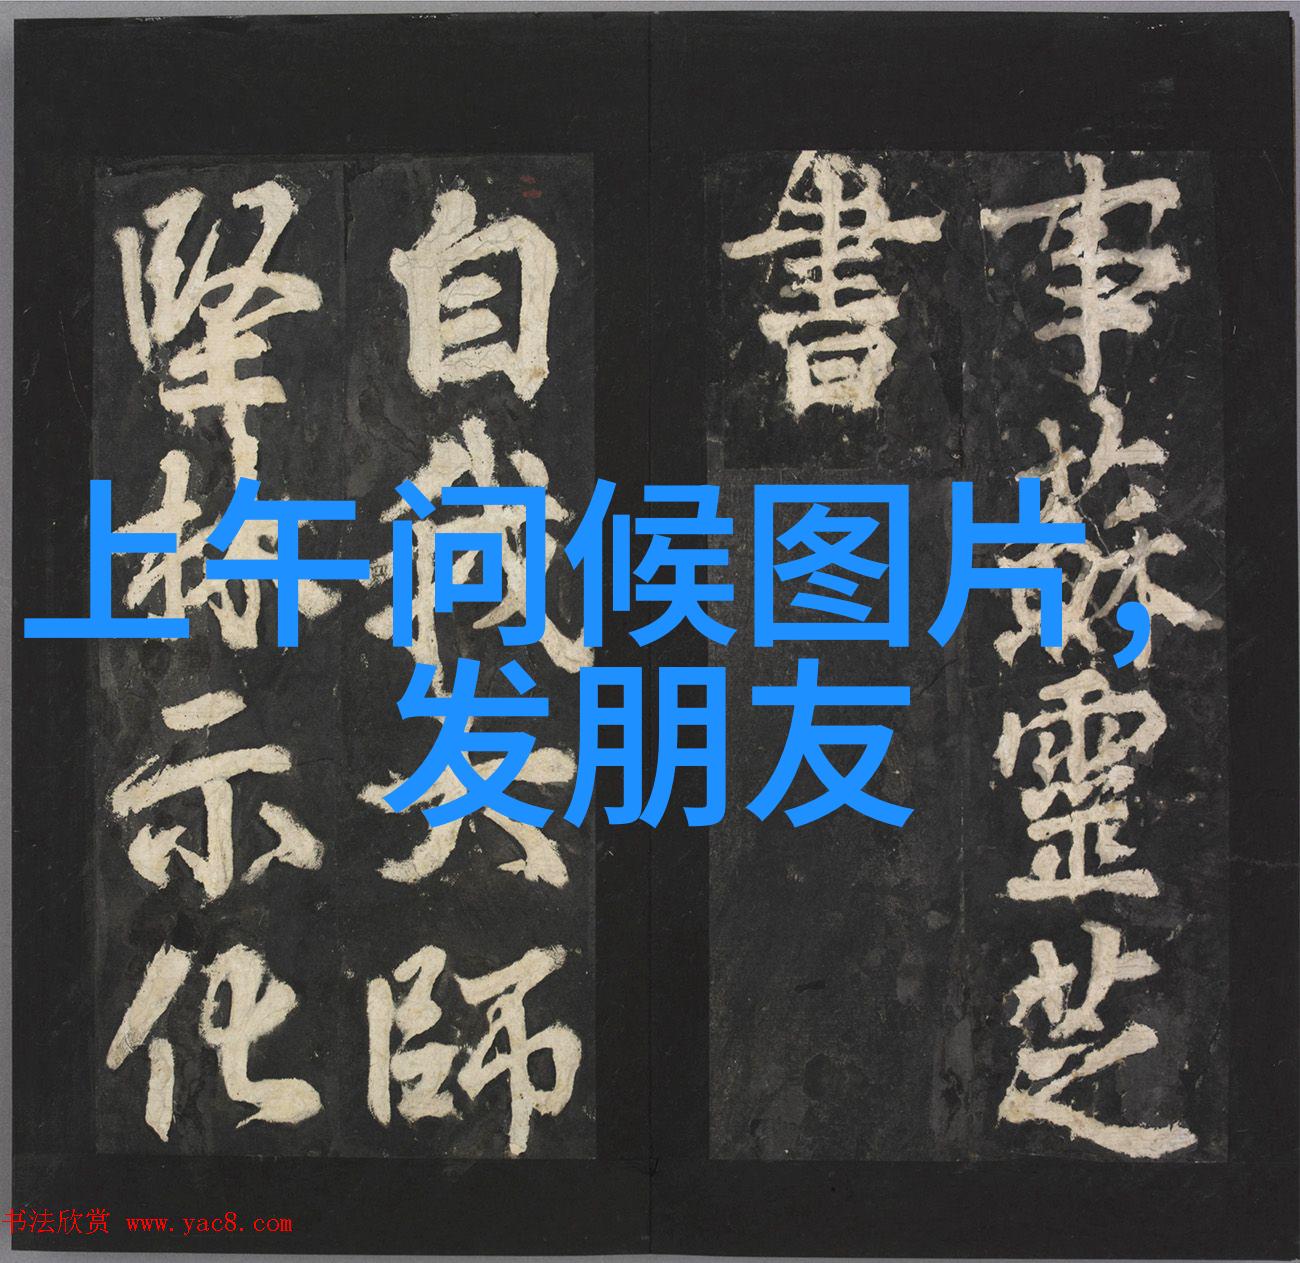 事蘇靈芝
書
自我大師
堅林示化
上午问候图片,
发朋友
书法欣赏 www.yac8.com